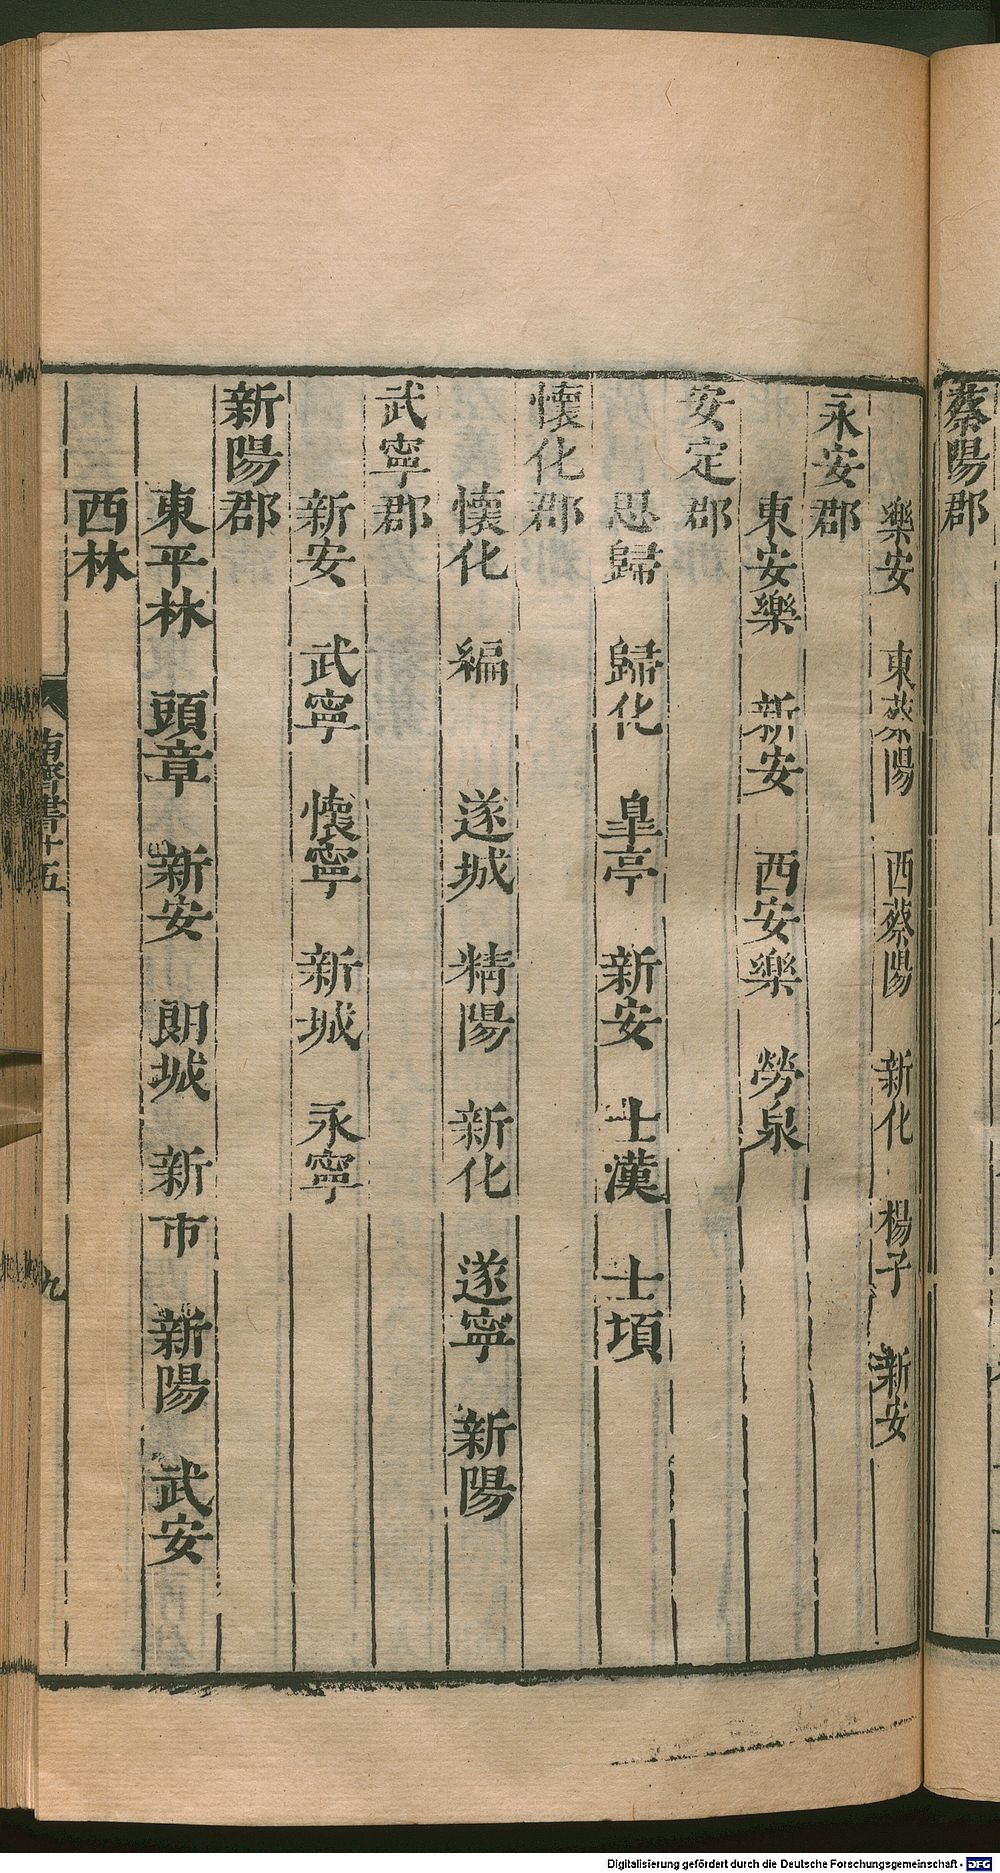 蔡陽郡
樂安 東蔡陽 西蔡陽 新化 楊子 新安
永安郡
東安樂 新安 西安樂 勞泉
安定郡
思歸 歸化 皐亭 新安 士漢 士頊
懷化郡
懷化 編 遂城 精陽 新化 遂寧 新陽
武寧郡
新安 武寧 懷寧 新城 永寧
新陽郡
東平林 頭章 新安 朗城 新市 新陽 武安
西林
南齊書十五 九
Digitalisierung gefördert durch die Deutsche Forschungsgemeinschaft - DFG